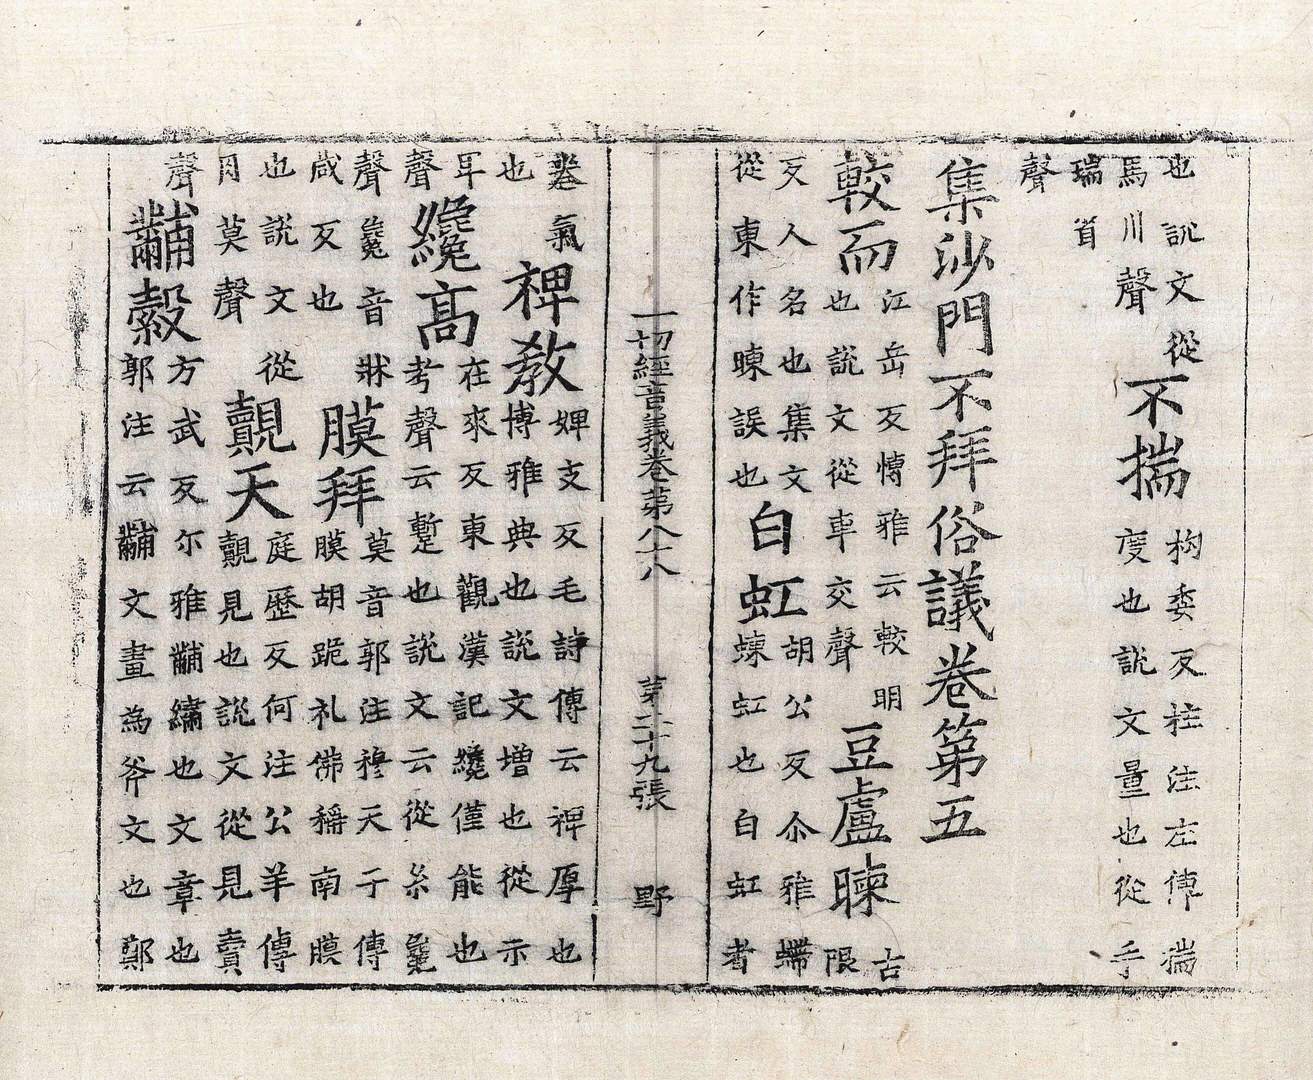 也說文從馬川聲不揣杓委反杜注左傳揣度也說文量也從手
瑞耑聲
集沙門不拜俗議卷第五
較而江岳反博雅云較明也說文從車交聲豆盧暕古限
反人名也集文從東作暕誤也白虹胡公反尒雅螮蝀虹也白虹者
一切經音義卷第八十八 第二十九張 野
卷氣也裨教婢支反毛詩傳云裨厚也博雅典也說文増也從示
耳聲纔高在來反東觀漢記纔僅能也考聲云蹔也說文云從糸毚
聲毚音牀咸反也膜拜莫音郭注穆天子傳膜胡跪礼佛稱南膜
也說文從冃莫聲覿天庭歷反何注公羊傳覿見也說文從見賣
聲黼縠方武反尓雅黼繡也文章也郭注云黼文畫為斧文也鄭